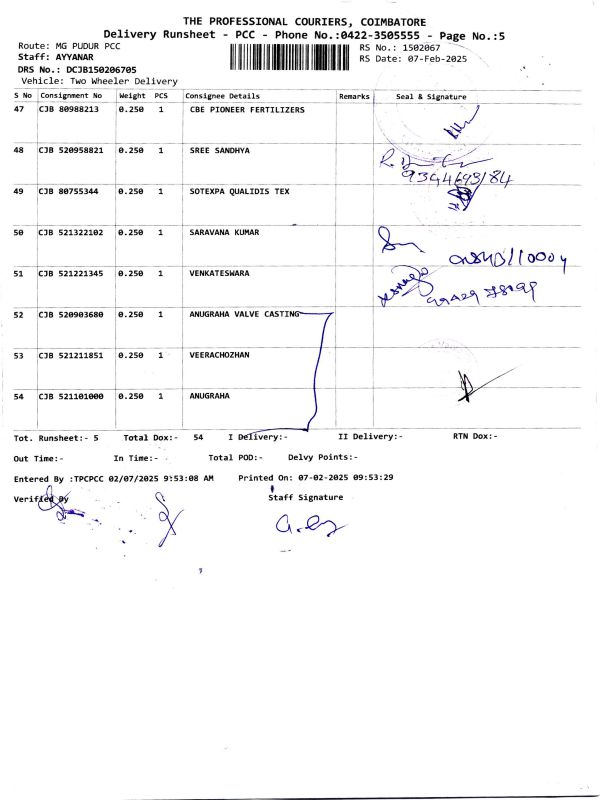 THE PROFESSIONAL COURIERS, COIMBATORE
Delivery Runsheet - PCC - Phone No.:0422-3505555 - Page No.:5
Route: MG PUDUR PCC
RS No.: 1502067
Staff: AYYANAR
RS Date: 07-Feb-2025
DRS No.: DCJB150206705
Vehicle: Two Wheeler Delivery
S No Consignment No Weight PCS Consignee Details Remarks Seal & Signature
47 CJB 80988213 0.250 1 CBE PIONEER FERTILIZERS
48 CJB 520958821 0.250 1 SREE SANDHYA
9394693184
49 CJB 80755344 0.250 1 SOTEXPA QUALIDIS TEX
50 CJB 521322102 0.250 1 SARAVANA KUMAR
51 CJB 521221345 0.250 1 VENKATESWARA
52 CJB 520903680 0.250 1 ANUGRAHA VALVE CASTING
53 CJB 521211851 0.250 1 VEERACHOZHAN
54 CJB 521101000 0.250 1 ANUGRAHA
Tot. Runsheet:- 5 Total Dox:- 54 I Delivery:- II Delivery:- RTN Dox:-
Out Time:- In Time:- Total POD:- Delvy Points:-
Entered By :TPCPCC 02/07/2025 9:53:08 AM Printed On: 07-02-2025 09:53:29
Verified By Staff Signature